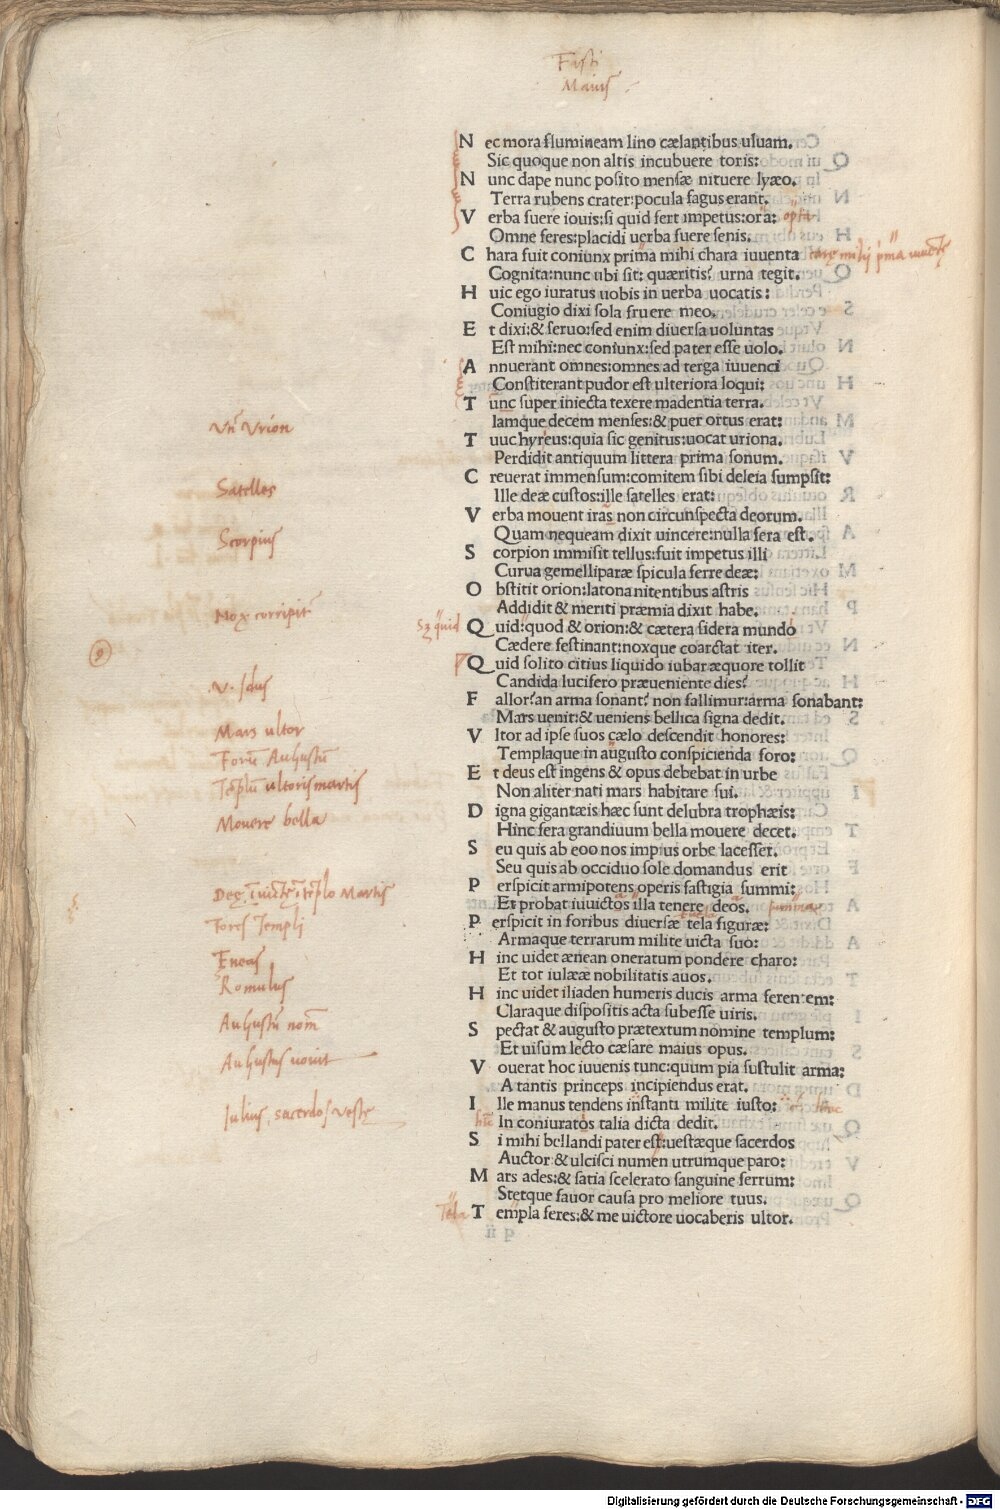 Fasti
Maius
N ec mora flumineam lino cælantibus uluam.
Sic quoque non altis incubuere toris:
N unc dape nunc posito mensæ nituere lyæo.
Terra rubens crater: pocula fagus erant.
V erba fuere iouis: si quid fert impetus: ora: opta
Omne feres: placidi uerba fuere senis.
C hara fuit coniunx prima mihi chara iuuenta
Cognita: nunc ubi sit: quæritis? urna tegit.
H uic ego iuratus uobis in uerba uocatis:
Coniugio dixi sola fruere meo.
E t dixi: & seruo: sed enim diuersa uoluntas
Est mihi: nec coniunx: sed pater esse uolo.
A nnuerant omnes: omnes ad terga iuuenci
Constiterant pudor est ulteriora loqui:
T unc super iniecta texere madentia terra.
Iamque decem menses: & puer ortus erat:
Vn̄ Vrion
T uuc hyreus: quia sic genitus: uocat uriona.
Perdidit antiquum littera prima sonum.
C reuerat immensum: comitem sibi deleia sumpsit:
Satelles
Ille deæ custos: ille satelles erat:
V erba mouent iras non circunspecta deorum.
Scorpius
Quam nequeam dixit uincere: nulla fera est.
S corpion immisit tellus: fuit impetus illi
Curua gemelliparæ spicula ferre deæ:
O bstitit orion: latona nitentibus astris
Nox corripit̄
Addidit & meriti præmia dixit habe.
Q uid: quod & orion: & cætera sidera mundo
Cædere festinant: noxque coarctat iter.
Q uid solito citius liquido iubar æquore tollit
Candida lucifero præueniente dies?
V. Idus
F allor? an arma sonant? non fallimur: arma sonabant:
Mars uenit: & ueniens bellica signa dedit.
Mars ultor
V ltor ad ipse suos cælo descendit honores:
Forū Augustū
Templaque in augusto conspicienda foro:
E t deus est ingens & opus debebat in urbe
Templū ultoris martis
Non aliter nati mars habitare sui.
D igna gigantæis hæc sunt delubra trophæis:
Mouere bella
Hinc fera grandiuum bella mouere decet.
S eu quis ab eoo nos impius orbe lacesset.
Seu quis ab occiduo sole domandus erit
P erspicit armipotens operis fastigia summi:
Et probat iuuictos illa tenere deos.
P erspicit in foribus diuersæ tela figuræ:
Fores Templi
Armaque terrarum milite uicta suo:
Eneas
H inc uidet ænean oneratum pondere charo:
Et tot iulææ nobilitatis auos.
Romulus
H inc uidet iliaden humeris ducis arma ferentem:
Claraque dispositis acta subesse uiris.
Augustū nom̄
S pectat & augusto prætextum nomine templum:
Et uisum lecto cæsare maius opus.
Augustus uouit
V ouerat hoc iuuenis tunc: quum pia sustulit arma:
A tantis princeps incipiendus erat.
I lle manus tendens instanti milite iusto:
Iulius, sacerdos vestę
In coniuratos talia dicta dedit.
S i mihi bellandi pater est: uestæque sacerdos
Auctor & ulcisci numen utrumque paro:
M ars ades: & satia scelerato sanguine ferrum:
Stetque fauor causa pro meliore tuus.
T empla feres: & me uictore uocaberis ultor.
Digitalisierung gefördert durch die Deutsche Forschungsgemeinschaft - DFG